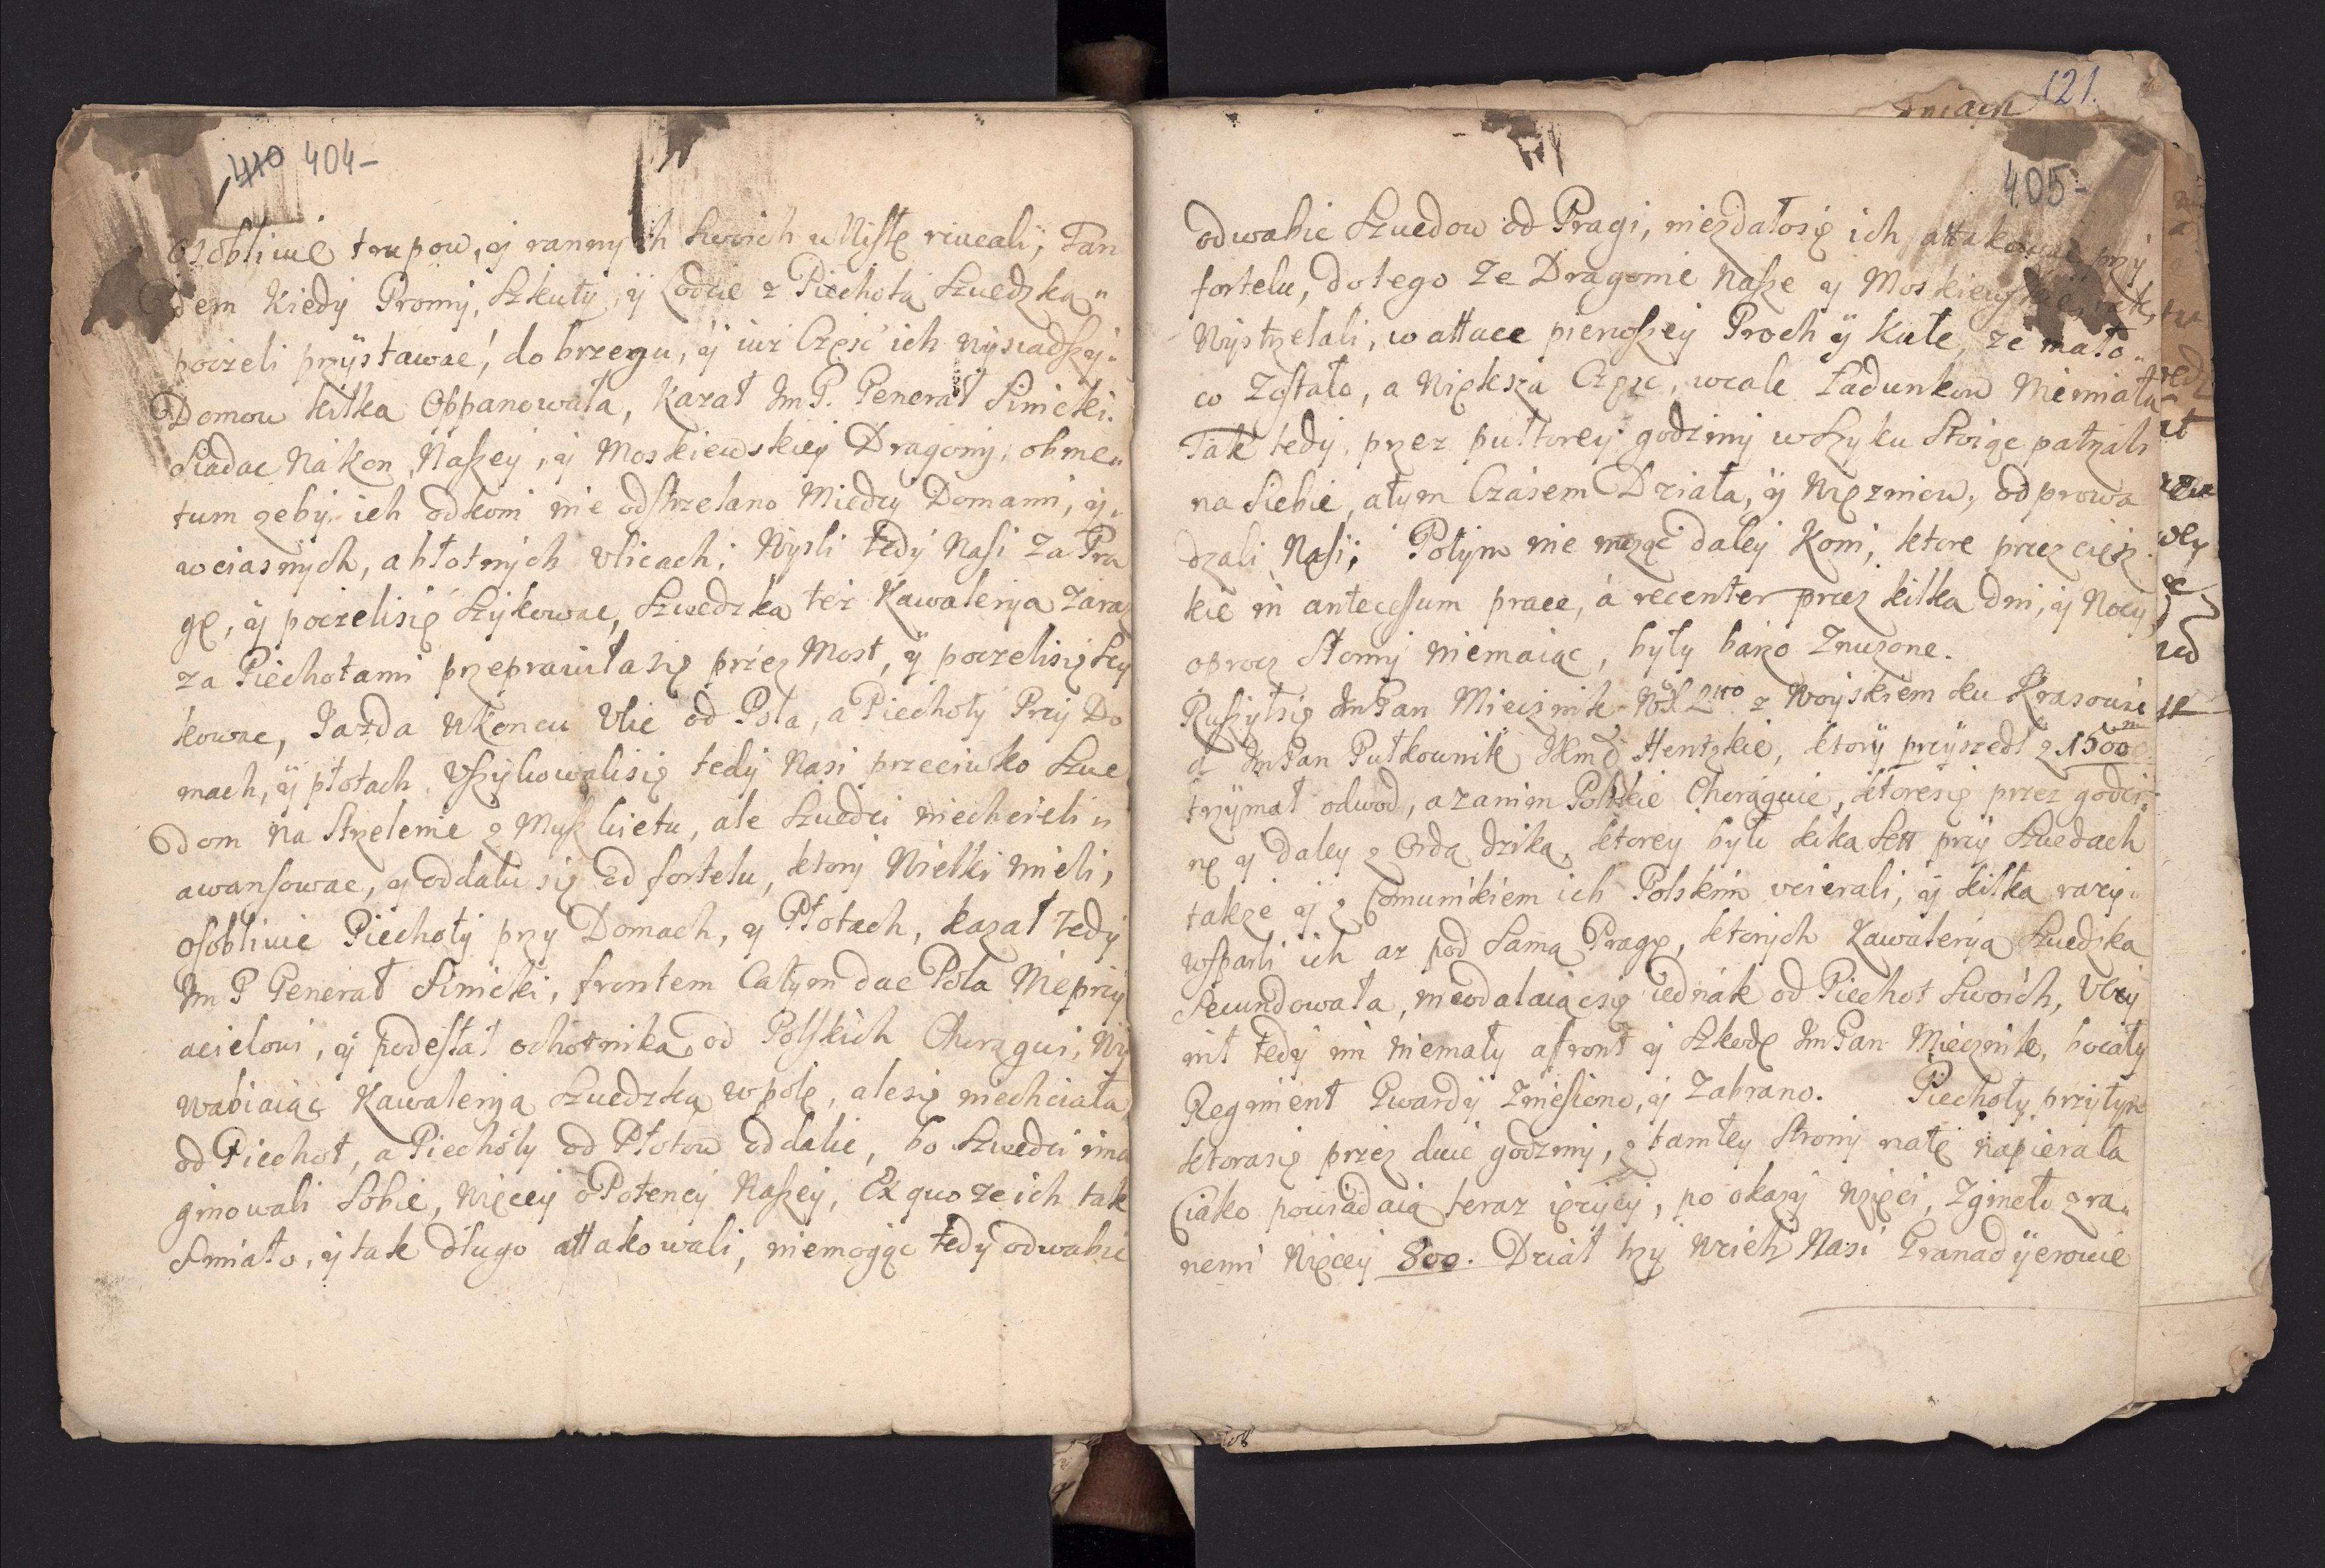 410 404-
osobliwie trupow, ÿ rannych Swoich w Wisłę rzucali; Tan
dem Kiedÿ Promÿ, Szkutÿ, ÿ Łodzie z Piechotą Szwedzką„
poczeli przÿstawać, do brzegu, ÿ iuż Częsć ich wÿsiadszÿ„
Domow kilka Oppanowała, Kazał Im P. Generał Sinicki.
Siadac Nákon Naszeÿ, ÿ Moskiewskieÿ Dragonÿ, obme„
tum zebÿ ich odkoni nie odstrzelano Międzÿ Domami, ÿ„
wciasnÿch, a błotnÿch Vlicach; Wÿsli tedÿ Nasi za Pra
gę, ÿ poczelisię Szÿkowac, Szwedzka też Kawalerÿa zaraz
za Piechotami przeprawiłasię przez Most, ÿ poczelisię Szÿ
kowac, Iazda w koncu Vlic od Pola, a Piechotÿ Przÿ Do
mach, ÿ płotach. Vszÿkowalisię tedÿ Nasi przeciwko Szwe
dom na Strzelenie z Muszkietu, ale Szwedzi niechcieli
awansowac, ÿ oddalic się od fortelu, ktorÿ Wielki mieli,
osobliwie Piechotÿ przÿ Domach, ÿ Płotach, kazał tedÿ
Im P Generał Sinicki, frontem Całÿm dac Pola Nieprzÿ
acielowi, ÿ podesłał ochotnika, od Polskich Chorągwi, Wÿ
wabiaiąc Kawalerÿą Szwedzką w pole, alesię niechciała
od Piechot, a Piechotÿ od Płotow oddalic, bo Szwedzi ima
ginowali Sobie, więceÿ o Potencÿ Naszeÿ, Ex quo ze ich tak
Smiało, ÿ tak długo attakowali, niemogąc tedÿ odwabic
121.
405-
odwabic Szwedow od Pragi, niezdałosię ich attakować przÿ
fortelu, do tego ze Dragonie Nasze ÿ Moskiewskie, tak
Wÿstrzelali, w attace pierwszeÿ Proch ÿ Kule, ze mało„
co Zostało, a Większa Częsc, wcale Ładunkow Niemiała
Tak tedÿ, przez pułtoreÿ godzinÿ w Szÿku Stoiąc patrzali
na Siebie, atÿm Czasem Działa, ÿ Więzniow, odprowa
dzali Nasi; Potÿm nie mogąc daleÿ Koni, ktore przez ciesz
kie in antecessum prace, á recenter przez kilka dni, ÿ Nocÿ
oprocz Słomÿ niemaiąc, bÿłÿ barzo Znuzone.
Ruszÿłsię Im Pan Miecznik W. X. Litto z Woÿskiem ku Krasowi
a Im Pan Pułkownik Hentzkie, ktorÿ przÿszedł z 1500
trzÿmał odwod, a zanim Polskie Chorągwie, ktoresię przez godzi„
nę ÿ daleÿ z Ordą dziką, ktoreÿ bÿło kilka Sett przÿ Szwedach
także ÿ z Comunikiem ich Polskim ucierali, ÿ kilka razÿ„
wsparli ich az pod Samą Pragę, ktorÿch Kawalerÿa Szwedzka
Secundowała, nieoddalaiącsię iednák od Piechot Swoich, Vczÿ
nił tedÿ im niemałÿ afront ÿ Szkodę Im Pan Miecznik, bo całÿ
Regiment Gwardÿ Zniesiono, ÿ Zabrano. Piechotÿ przÿtÿm
ktorasię przez dwie godzinÿ, z tamteÿ Stronÿ natę napierała
(iako powiadaią teraz ięzÿcÿ, po okazÿ wzięci, Zgineło z ra„
nemi Więceÿ 800. Dział trzÿ Wzieli Nasi Granadÿerowie